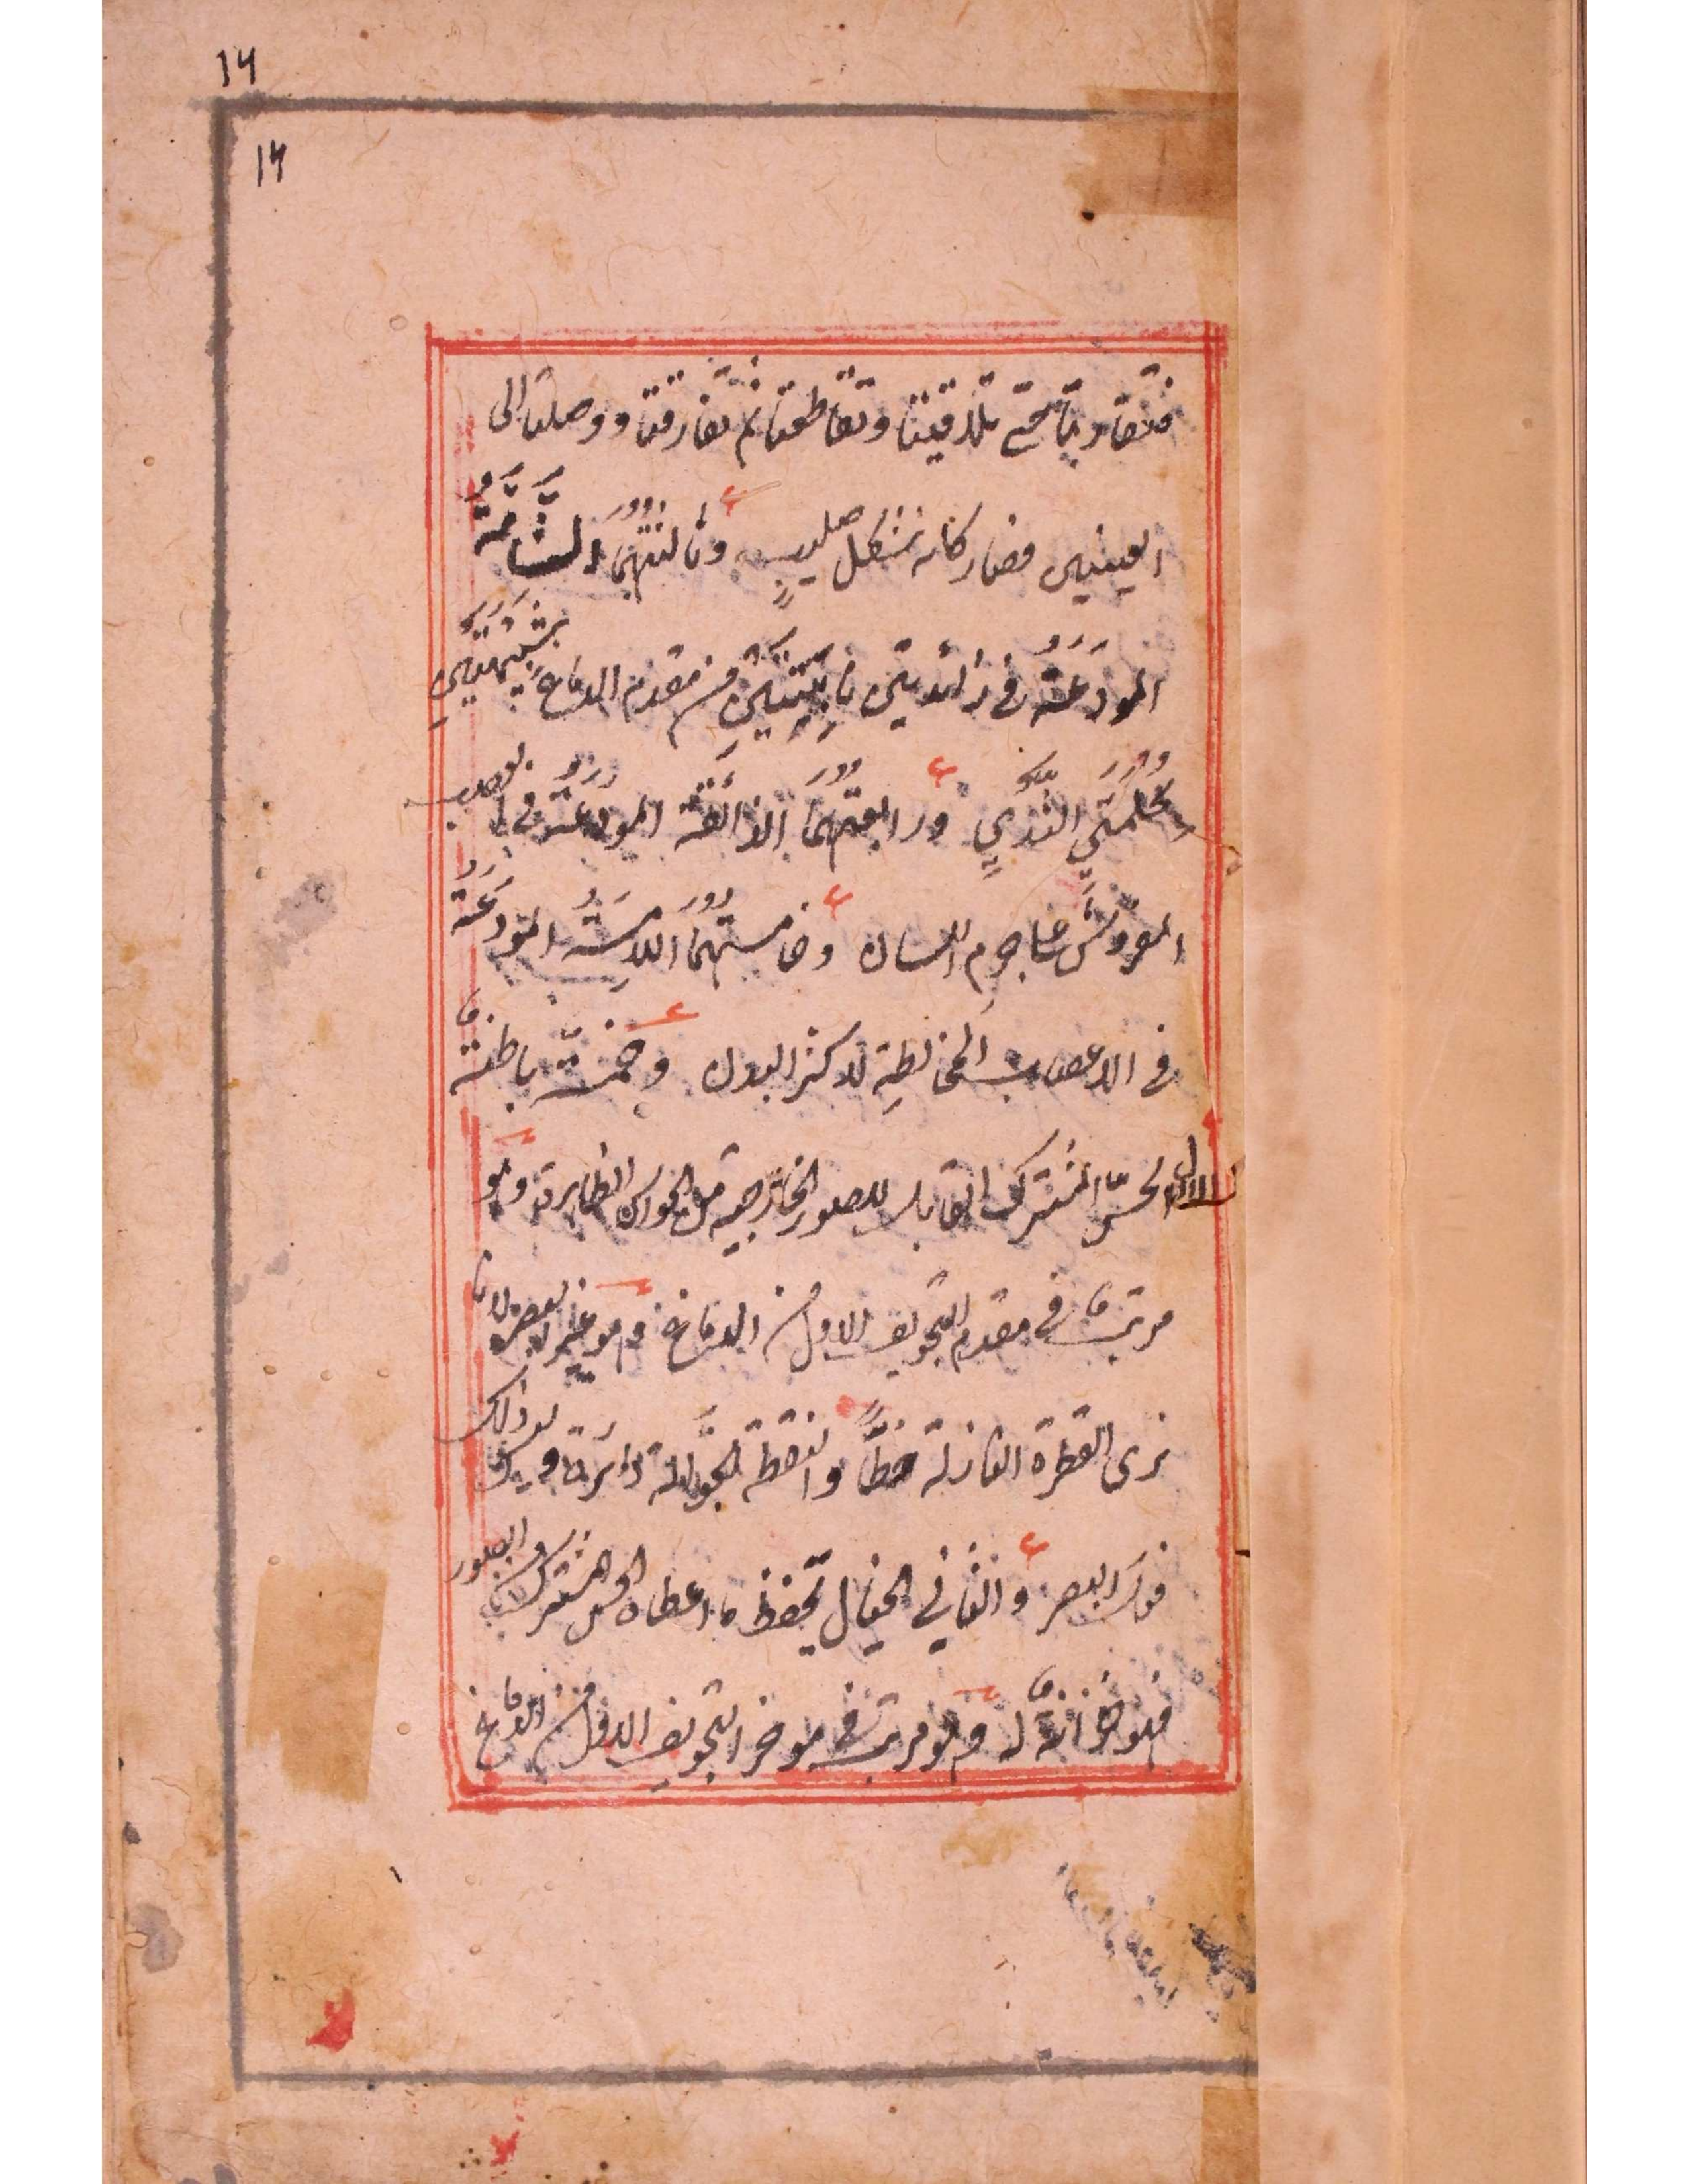 ١٦
١٦
فتقاربتا حتى تلاقيتا وتقاطعتا ثم تفارقتا ووصلتا الى
العينين فصار كانه بشكل صليبٍ وثالثتهُمَا الشَّامَّةُ
المودَعَةُ في زائدتين نابِتَتَينِ من مقدم الدماغ شَبِيهَتَينِ
بحُلمَتَي الثديِ ورابعتهُمَا الذائقة المودعَةُ في العصب
المفروش على جرم اللسان وخامستهُمَا اللامِسَةُ المودَعَةُ
في الاعصاب المخالطِة لاكثر البدن وخمسة باطنة
الاول الحسّ المشترك القابل للصور الخارجية من الحواس الظاهرة وهو
مرتب في مقدم التجويف الاول من الدماغ وهو غير البصر لانا
نرى القطرة النازلة خطًّا والنقطة الجوّالة دائرة وليس ذلك
في البصر والثاني الخيال يحفظ ما اعطاه الحس المشترك من الصور
فهو خزانة له وهو مرتب في موخر التجويف الاول من الدماغ